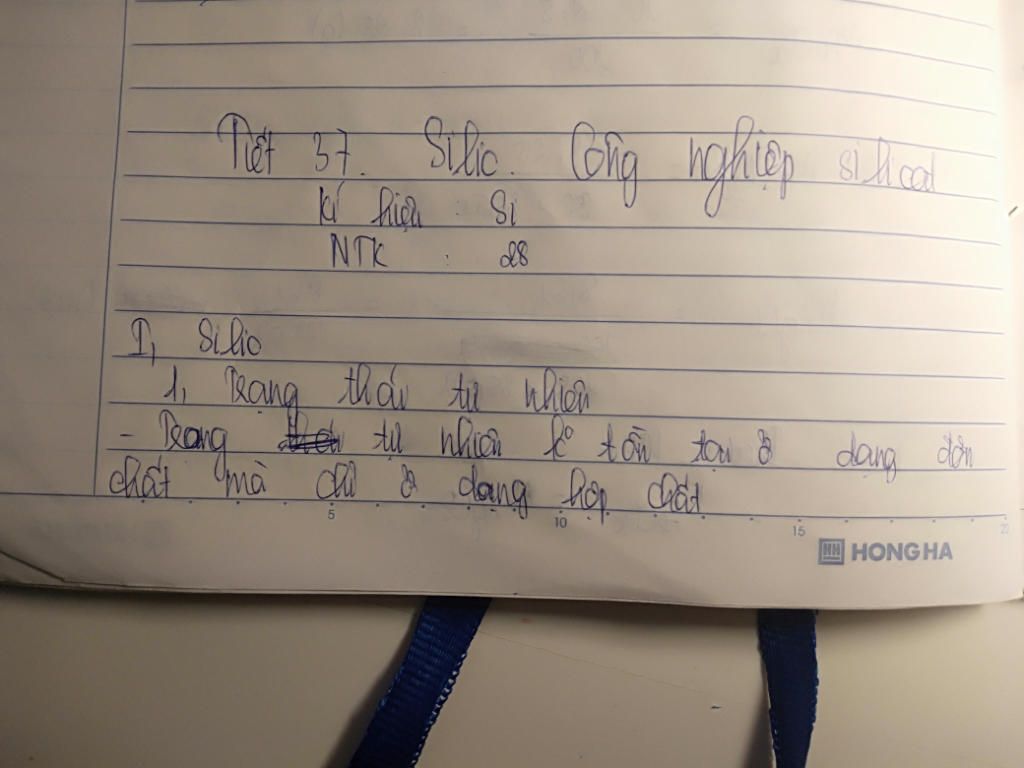 Tiết 37. Silic. Công nghiệp silicat
Kí hiệu : Si
NTK : 28
I, Silic
1, Trạng thái tự nhiên
- Trong tự nhiên k° tồn tại ở dạng đơn
chất mà chỉ ở dạng hợp chất
5 10 15 20
HH HONG HA